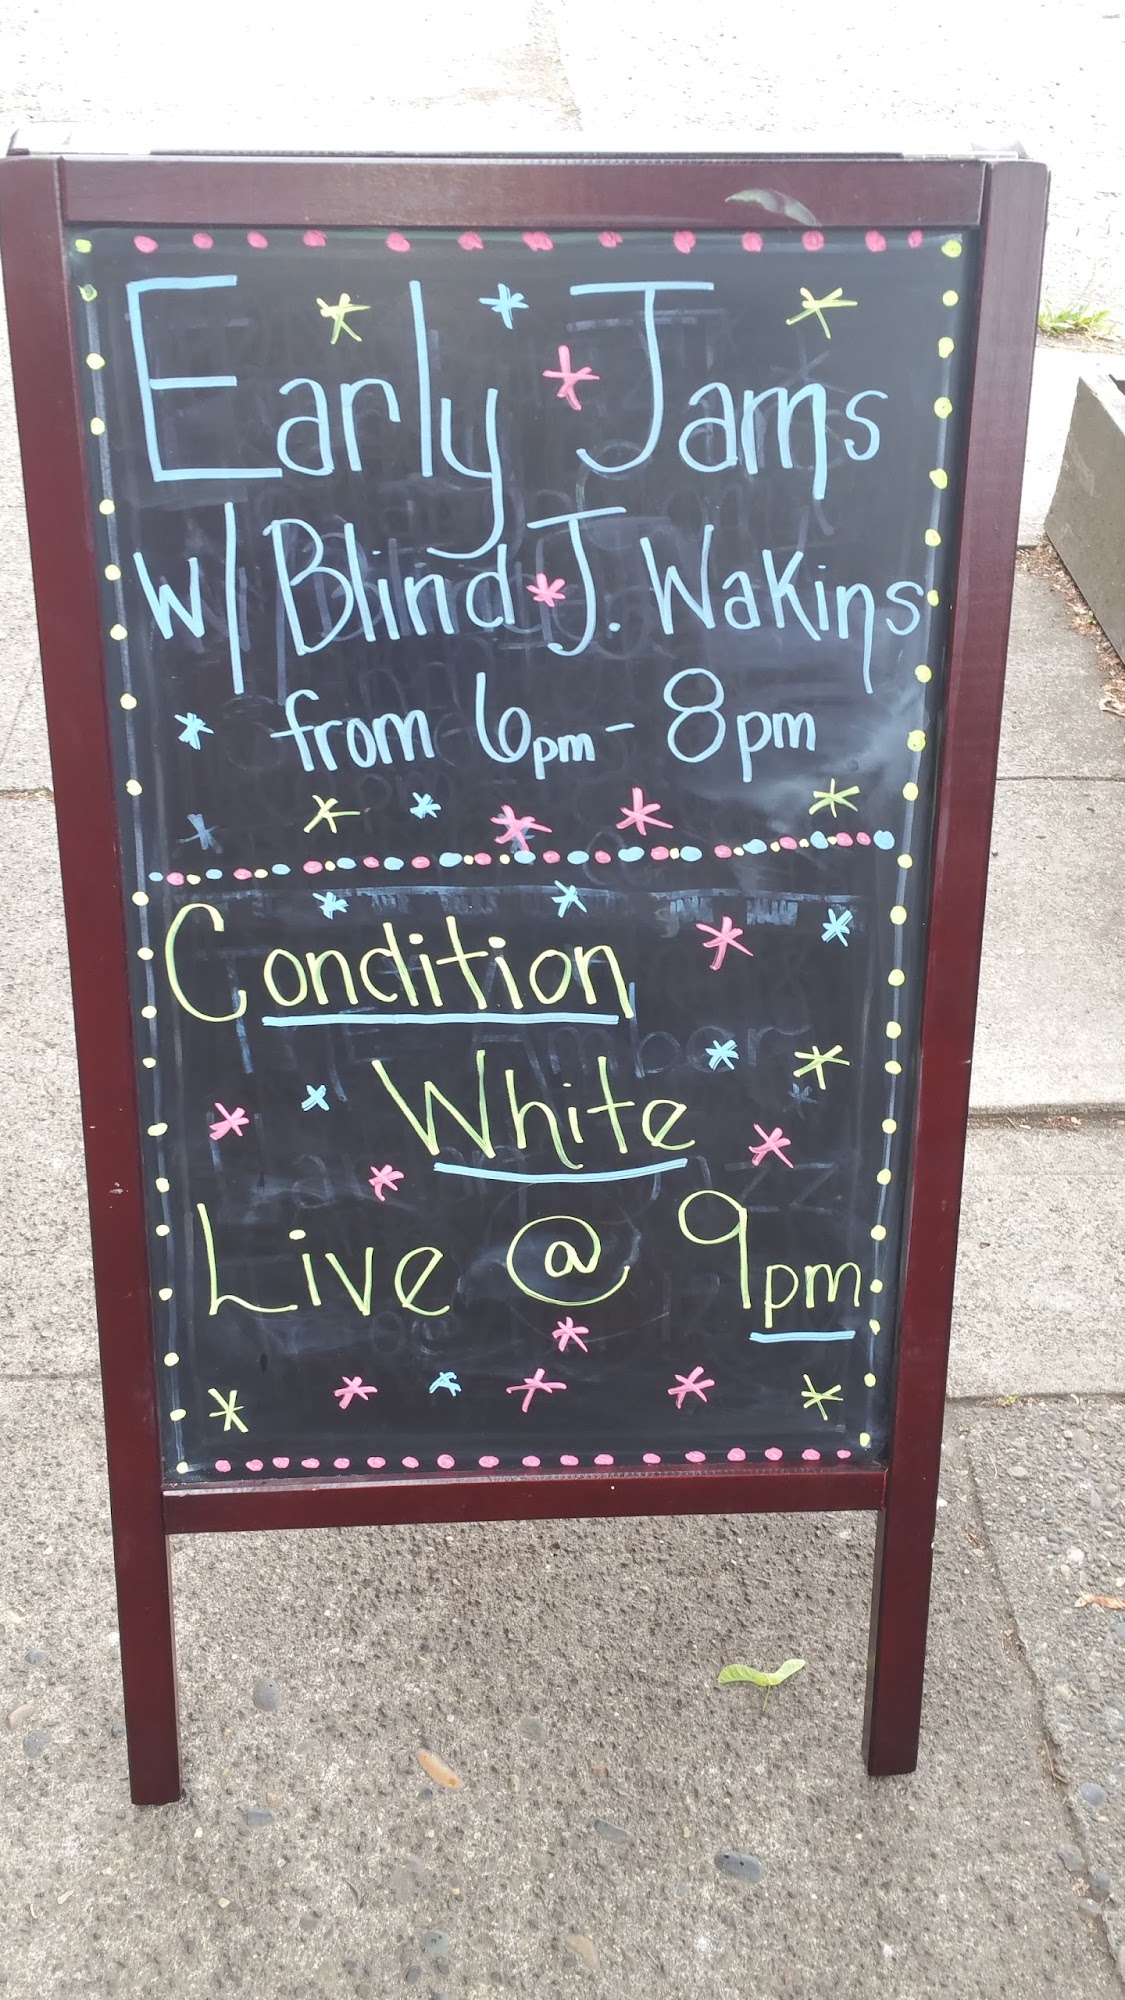 Early Jams
w/ Blind J. Wakins
from 6pm - 8pm
Condition
White
Live @ 9pm